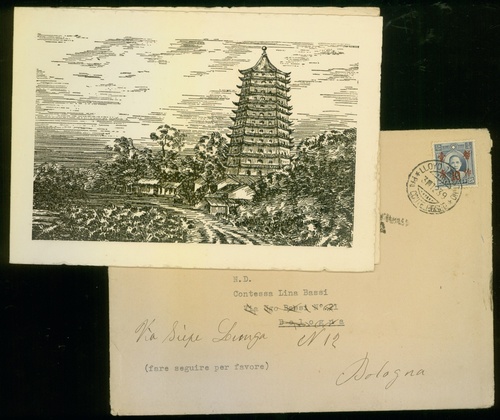 N.D.
Contessa Lina Bassi
Via Ugo Bassi N°21
Bologna
Via Siepe Lunga N 12
(fare seguire per favore)
Bologna